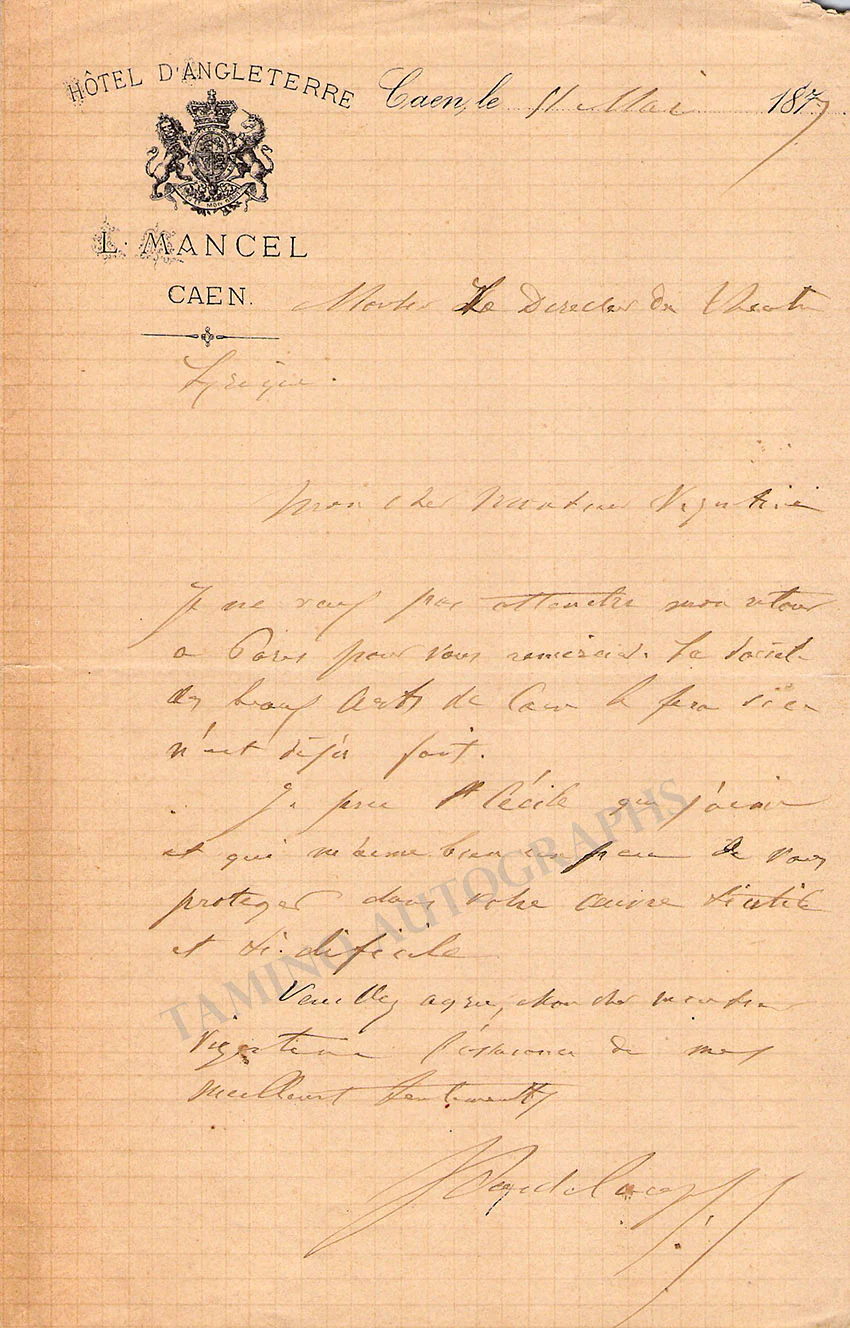 HÔTEL D'ANGLETERRE
L. MANCEL
CAEN.
Caen, le 11 Mai 1877
Monsieur Le Directeur du Theatre
Lyrique.
Mon cher Monsieur Vizentini
Je ne veux pas attendre mon retour
a Paris pour vous remercier. La Société
des beaux Arts de Caen le fera si ce
n'est déjà fait.
Je prie Ste Cécile que j'aime
et qui m'aime bien un peu de vous
proteger dans votre œuvre si utile
et si difficile
Veuillez agréer, mon cher monsieur
Vizentini l'assurance de mes
meilleurs sentiments
Pasdeloup
TAMINO AUTOGRAPHS